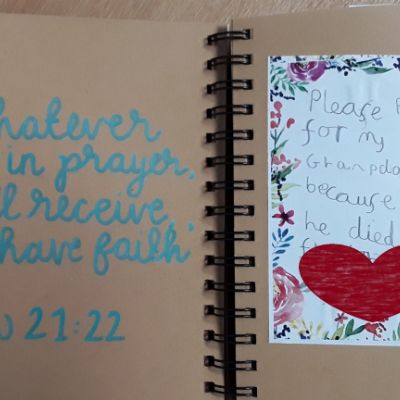 hatever
in prayer,
ll receive,
have faith'
w 21:22
Please
for my
Grandpa
because
he died